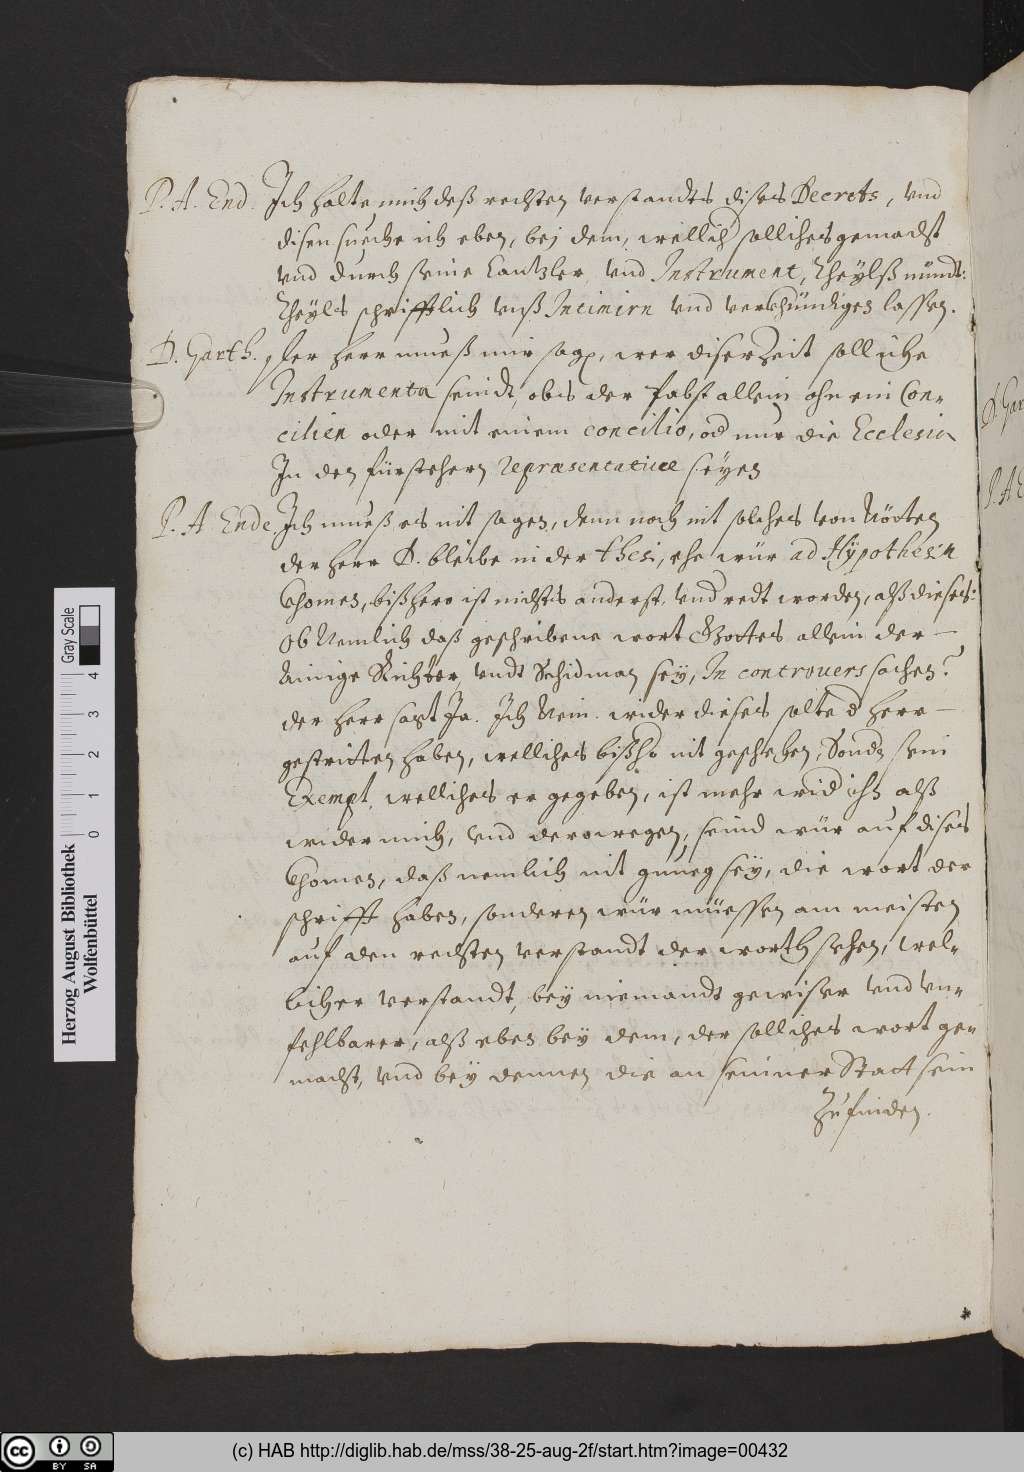 P. A. End. Ich halte mich deß rechten verstandts dises Decrets, vnd
disen sueche ich eben, bej dem, wellich solliches gemacht
vnd durch seine Cantzler, vnd Instrument, theylß mündt:
theyls schrifftlich vnß Intimirn vnd verkhündigen lassen.
D. Garth. Der herr mueß mir sagen, wer diser Zeit solliche
Instrumenta seindt, obs der Pabst allein ohn ein Con-
cilien oder mit einem concilio, od nur die Ecclesia
In den fürstehern repræsentatiuæ seyen
P. A. Ende. Ich mueß es nit sagen, dann noch nit solches von Nöten
der herr D. bleibe in der thesi, ehe wür ad Hÿpothesin
khomen, bißhero ist nichts anderst, vnd redt worden, alß dieses:
Ob Nemlich daß geschribene wort Gottes allein der
Ainige Richter, vndt Schidman seÿ, In controuers sachen?
der herr sagt Ja. Ich Nein. wider dieses solte d herr
gestritten haben, welliches bißhero nit geschehen, Sondern sein
Exempl, welliches er gegeben, ist mehr wid ihn alß
wider mich, vnd derowegen, seind wür auf dises
khomen, daß nemlich nit gnueg seÿ, die wort der
schrifft haben, sonderen wür müessen am meisten
auf den rechten verstandt der worth sehen, wel-
licher verstandt, beÿ niemandt gewiser vnd vn-
fehlbarer, alß eben beÿ dem, der solliches wort ge-
macht, vnd beÿ dennen die an seiner Statt sein
Zufinden.
D. Gar
P. A E
Herzog August Bibliothek
Wolfenbüttel
Gray Scale
0 1 2 3 4
cc BY SA
(c) HAB http://diglib.hab.de/mss/38-25-aug-2f/start.htm?image=00432